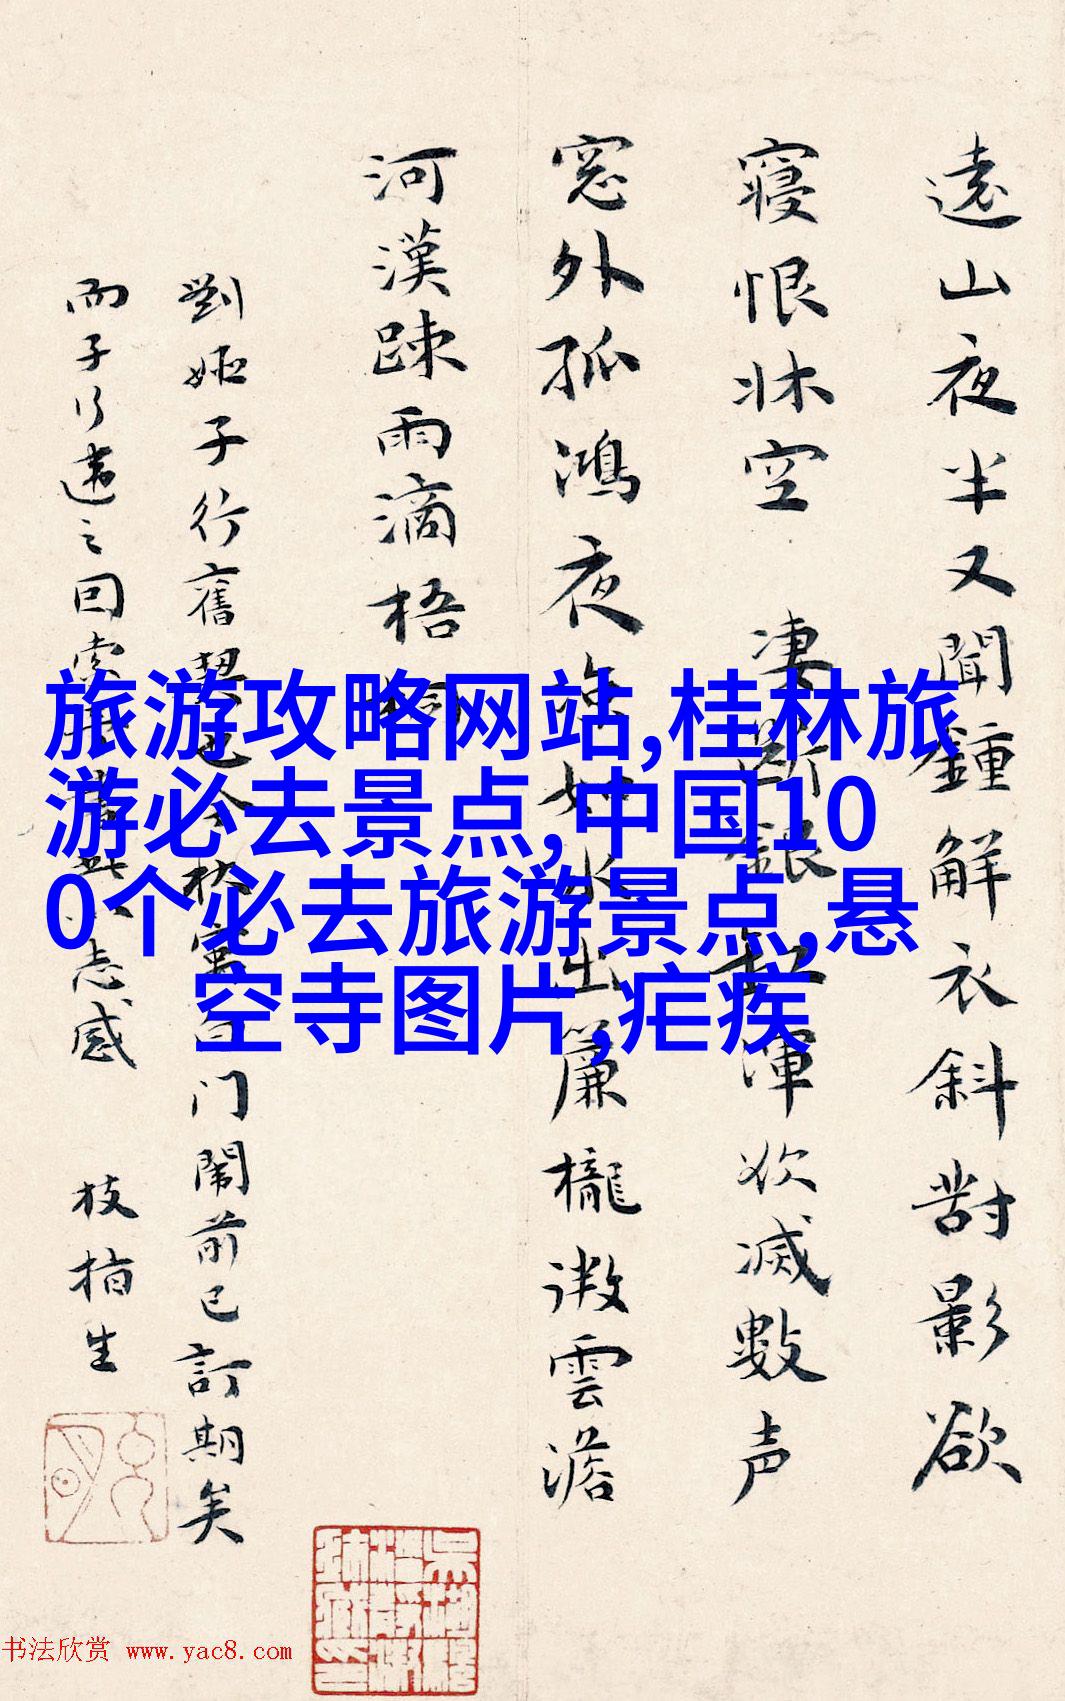 遠山夜半又聞鍾解衣斜對影欲
寢恨牀空 凄断銀缸渾欲滅數声
窓外孤鴻夜涼如水出簾櫳微雲澹
河漢踈雨滴梧桐
劉姬子行舊
门鬧前已訂期矣
而子行遠之回索
志感 枝指生
旅游攻略网站,桂林旅
游必去景点,中国10
0个必去旅游景点,悬
空寺图片,疟疾
书法欣赏 www.yac8.com